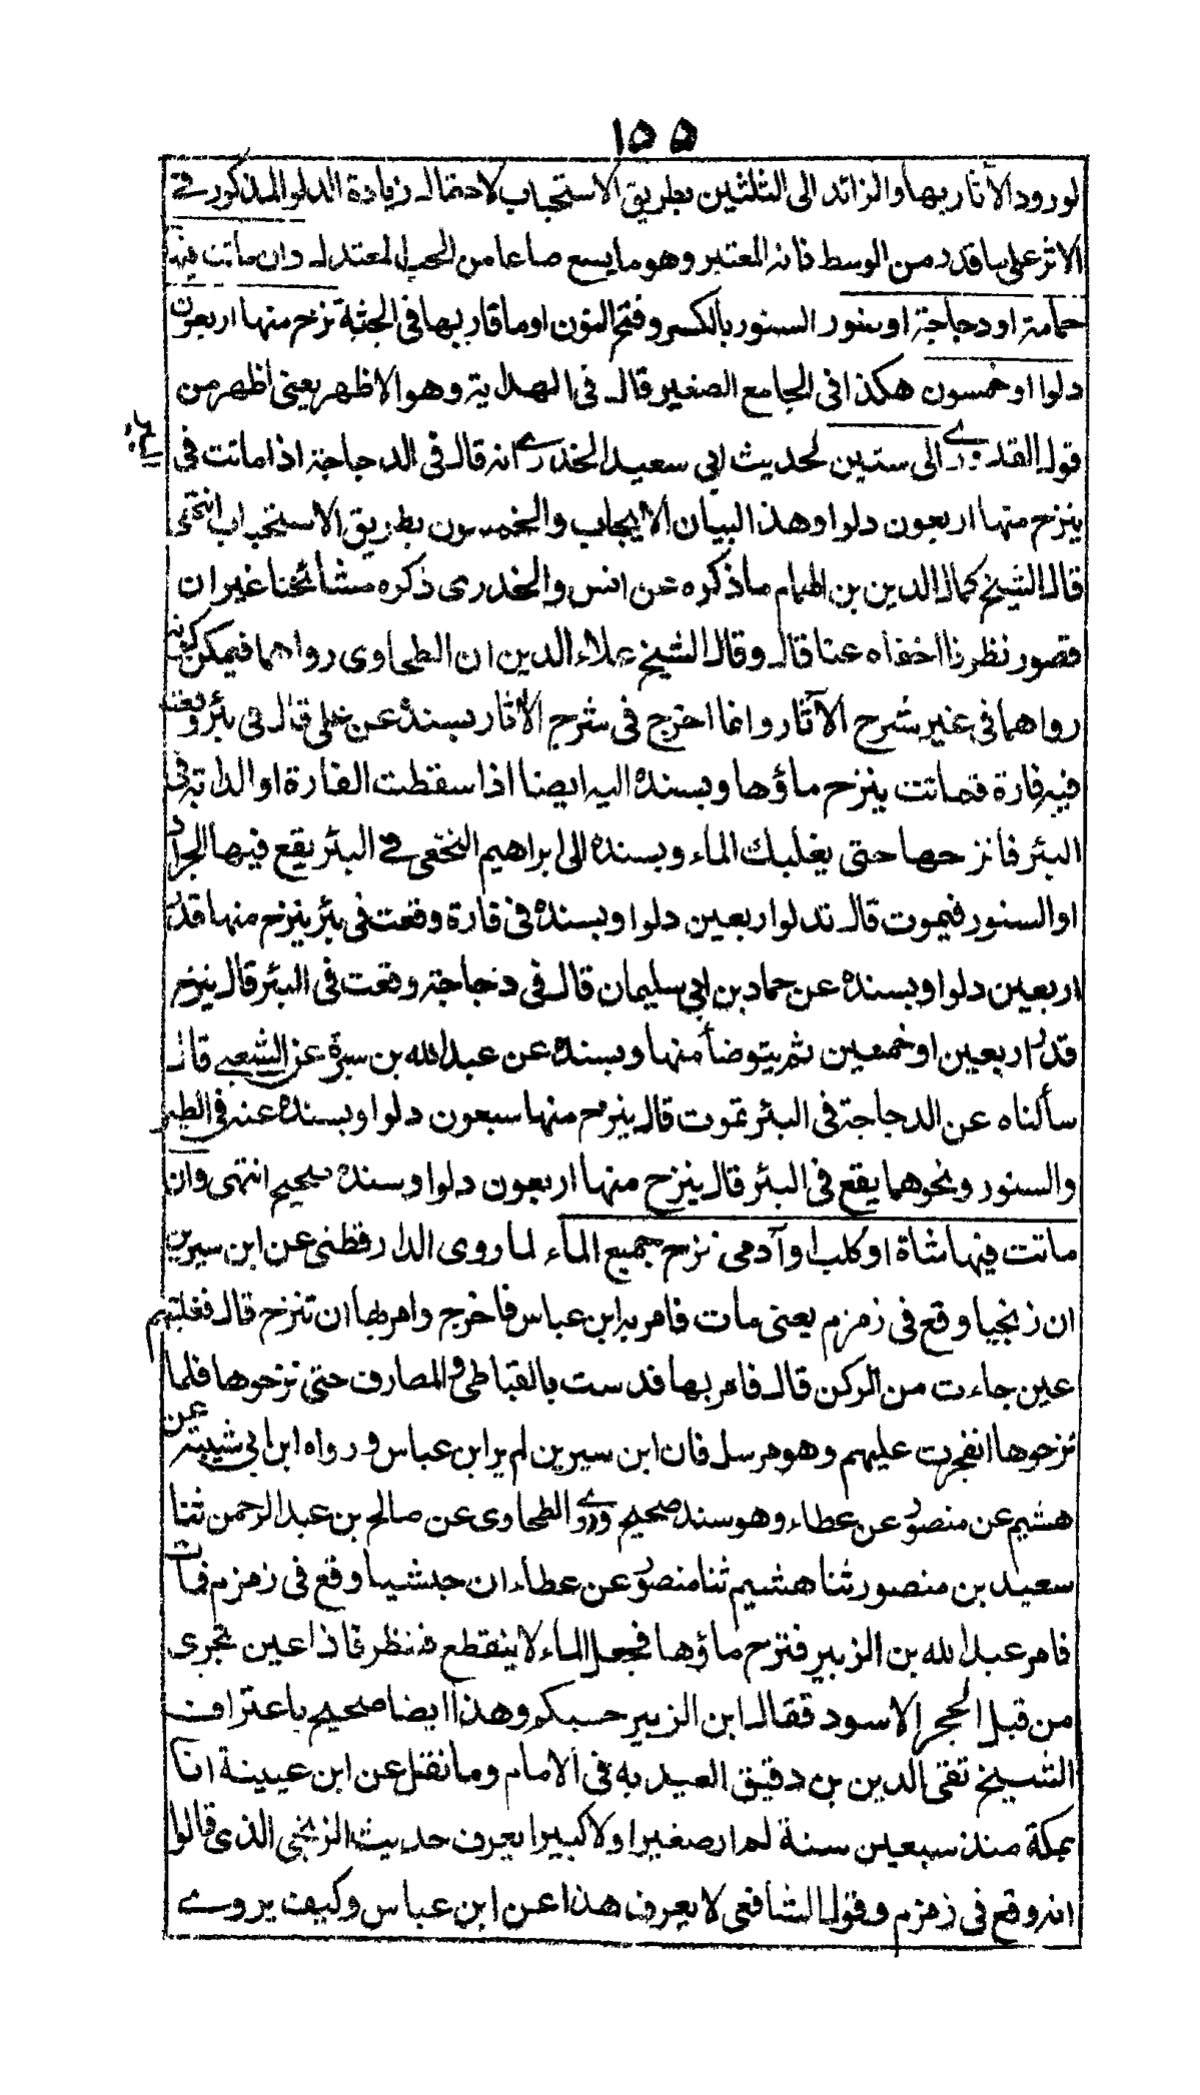 ١٥٥
لورود الأثار بها والزائد الى الثلثين بطريق الاستحباب لاحتمال زيادة الدلو المذكور في
الاثر على ما قدر من الوسط فانه المعتبر وهو ما يسع صاعا من الحب المعتدل وان ماتت فيها
حمامة او دجاجة او سنور السنور بالكسر وفتح النون او ما قاربها في الجثة نزح منها اربعون
دلوا او خمسون هكذا في الجامع الصغير قال في الهداية وهو الاظهر يعني اظهر من
قول القدوري الى ستين لحديث ابي سعيد الخدري انه قال في الدجاجة اذا ماتت في
بئر
ينزح منها اربعون دلوا وهذا البيان الايجاب والخمسون بطريق الاستحباب انتهى
قال الشيخ كمال الدين بن الهمام ما ذكره عن انس والخدري ذكره مشائخنا غير ان
قصور نظرنا اخفاه عنا قال وقال الشيخ علاء الدين ان الطحاوي رواهما فيمكن كونه
رواهما في غير شرح الآثار وانما اخرج في شرح الأثار بسنده عن علي قال في بئر وقعت
فيه فارة فماتت ينزح ماؤها وبسنده اليه ايضا اذا سقطت الفارة او الدابة في
البئر فانزحها حتى يغلبك الماء وبسنده الى ابراهيم النخعي في البئر يقع فيها الجراد
او السنور فيموت قال تدلو اربعين دلوا وبسنده في فارة وقعت في بئر ينزح منها قدر
اربعين دلوا وبسنده عن حماد بن ابي سليمان قال في دجاجة وقعت في البئر قال ينزح
قدر اربعين او خمسين ثم يتوضأ منها وبسنده عن عبد الله بن سبرة عن الشعبي قال
سألناه عن الدجاجة في البئر تموت قال ينزح منها سبعون دلوا وبسنده عنه في الطير
والسنور ونحوهما يقع في البئر قال ينزح منها اربعون دلوا وسنده صحيح انتهى وان
ماتت فيها شاة او كلب او آدمي نزح جميع الماء لما روى الدارقطني عن ابن سيرين
ان زنجيا وقع في زمزم يعني مات فامر به ابن عباس فاخرج وامر بها ان تنزح قال فغلبتهم
عين جاءت من الركن قال فامر بها فدست بالقباطي والمصارف حتى نزحوها فلما
نزحوها انفجرت عليهم وهو مرسل فان ابن سيرين لم ير ابن عباس ورواه ابن ابي شيبة عن
هشيم عن منصور عن عطاء وهو سند صحيح وروى الطحاوي عن صالح بن عبد الرحمن ثنا
سعيد بن منصور ثنا هشيم ثنا منصور عن عطاء ان حبشيا وقع في زمزم فمات
فامر عبد الله بن الزبير فنزح ماؤها فجعل الماء لا ينقطع فنظر فاذا عين تجرى
من قبل الحجر الاسود فقال ابن الزبير حسبكم وهذا ايضا صحيح باعتراف
الشيخ تقي الدين بن دقيق العيد به في الامام وما نقل عن ابن عيينة انا
بمكة منذ سبعين سنة لم ار صغيرا ولا كبيرا يعرف حديث الزنجي الذي قالوا
انه وقع في زمزم وقول الشافعي لا يعرف هذا عن ابن عباس وكيف يروى